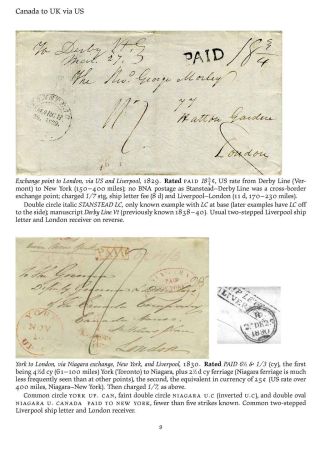 Canada to UK via US
To Derby Vt
PAID
18 3/4
The
George Morley
77
Hatton Garden
London
Exchange point to London, via US and Liverpool, 1829. Rated PAID 18¾¢, US rate from Derby Line (Ver-
mont) to New York (150–400 miles); no BNA postage as Stanstead–Derby Line was a cross-border
exchange point; charged 1/7 stg, ship letter fee (8 d) and Liverpool–London (11 d, 170–230 miles).
Double circle italic STANSTEAD LC, only known example with LC at base (later examples have LC off
to the side); manuscript Derby Line Vt (previously known 1838–40). Usual two-stepped Liverpool ship
letter and London receiver on reverse.
PAID
YORK
NOV
London
LIVERPOOL
1830
York to London, via Niagara exchange, New York, and Liverpool, 1830. Rated PAID 6½ & 1/3 (cy), the first
being 4½d cy (61–100 miles) York (Toronto) to Niagara, plus 2½d cy ferriage (Niagara ferriage is much
less frequently seen than at other points), the second, the equivalent in currency of 25¢ (US rate over
400 miles, Niagara–New York). Then charged 1/7, as above.
Common circle YORK UP. CAN, faint double circle NIAGARA U.C (inverted U.C), and double oval
NIAGARA U. CANADA PAID TO NEW YORK, fewer than five strikes known. Common two-stepped
Liverpool ship letter and London receiver.
9